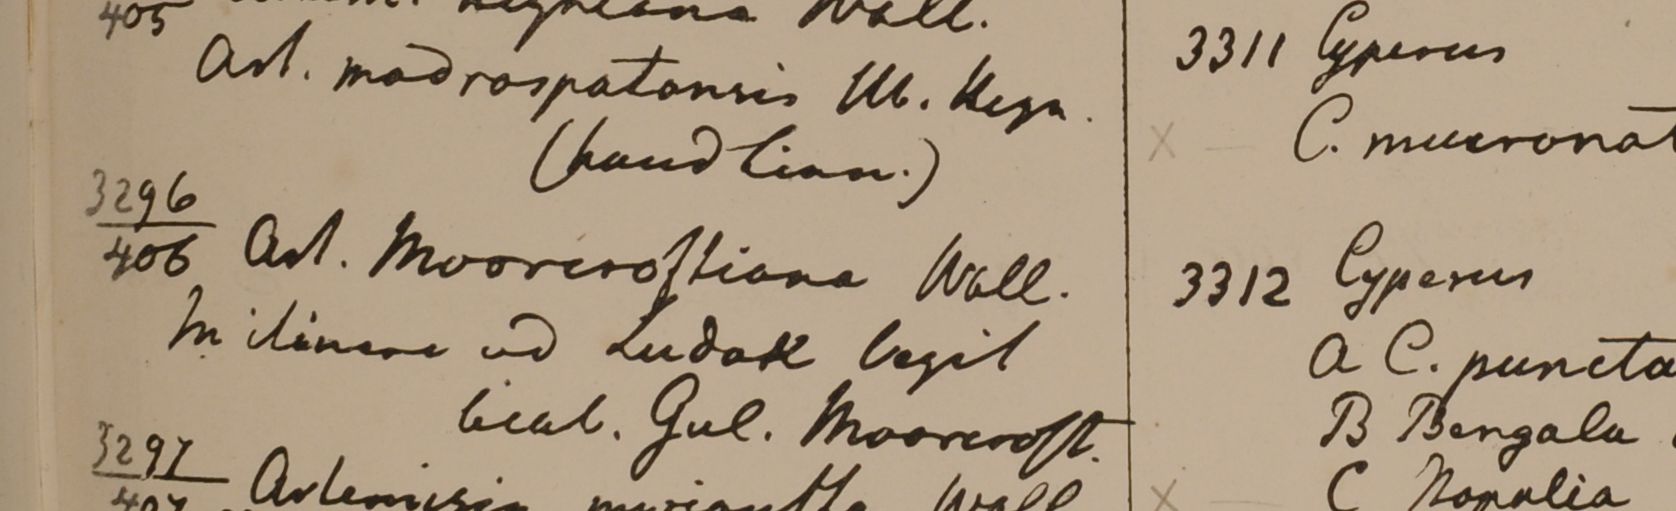 405 Wall.
Art. madraspatensis Hb. Heyn.
(haud Linn.)
3296
406 Art. Moorcroftiana Wall.
In itinere ad Ludak legit
beat. Gul. Moorcroft.
3297
407 Artemisia myriantha Wall
3311 Cyperus
X — C. mucronat
3312 Cyperus
A C. puncta
B Bengala
X — C Napalia